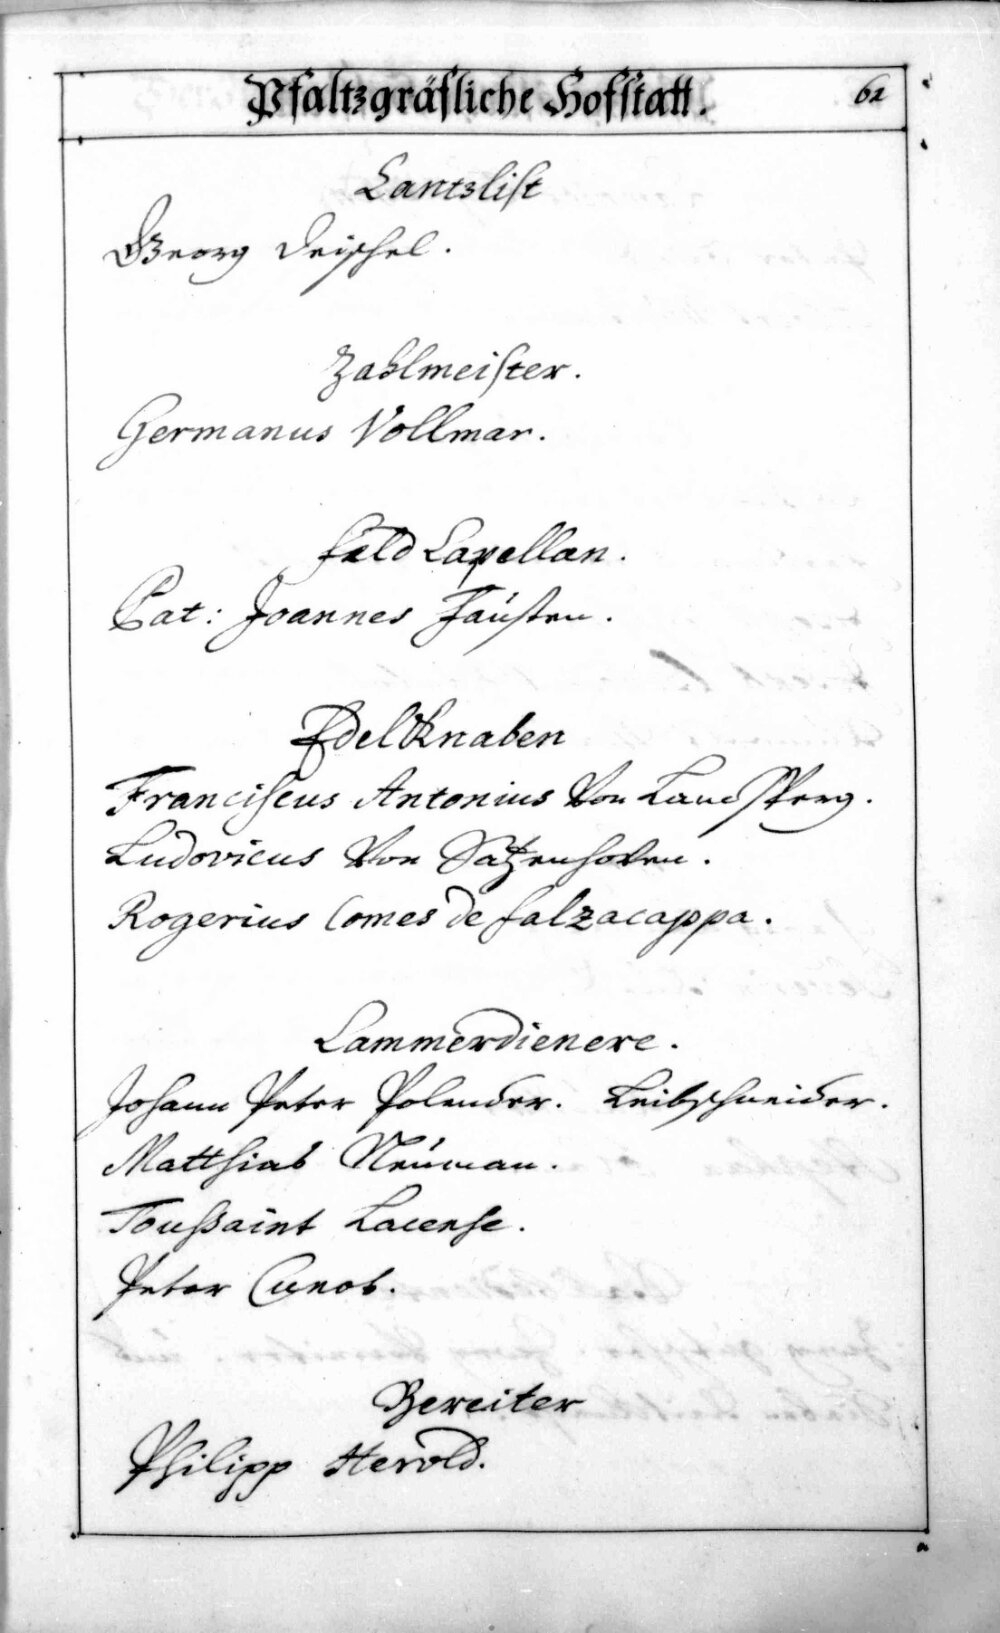 Pfaltzgräfliche Hofstatt. 62
Cantzlist
Georg Deischel.
Zahlmeister.
Germanus Vollmar.
Feld Capellan.
Pat: Joannes Faüsten.
Edel Knaben
Franciscus Antonius Von Landsperg.
Ludovicus Von Satzenhoven.
Rogerius Comes de falzacappa.
Cammerdienere.
Johann Peter Polender. Leibschneider.
Matthias Neüman.
Toussaint Lacense.
Peter Cunot.
Bereiter
Philipp Herold.